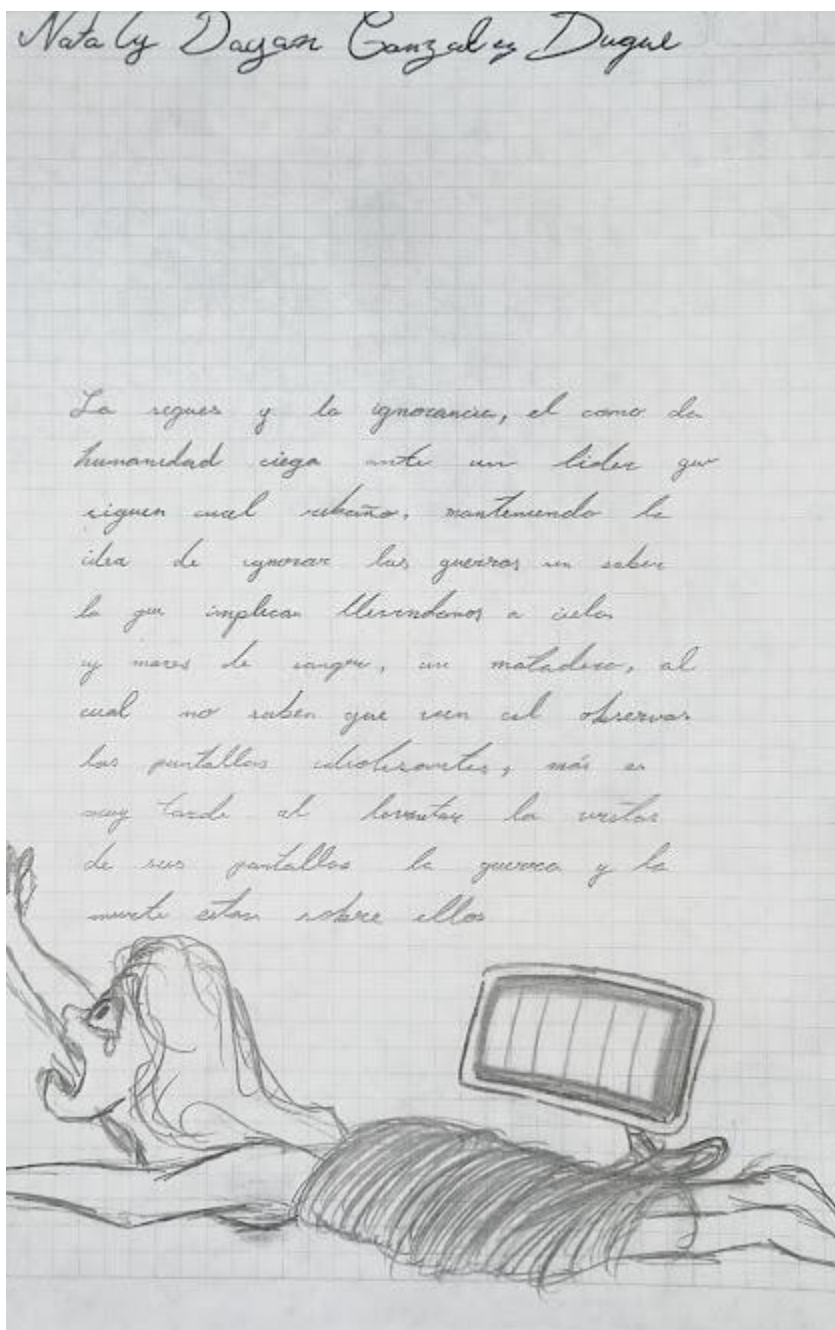 Nataly Dayan Gonzalez Duque
La segues y la ignorancia, el como la
humanidad ciega ante un lider que
siguen cual rebaño, manteniendo la
idea de ignorar las guerras sin saber
lo que implican llevandonos a cielos
y mares de sangre, un matadero, al
cual no saben que van al observar
las pantallas idiotisantes, más es
muy tarde al levantar la vista
de sus pantallas la guerra y la
muerte estan sobre ellos